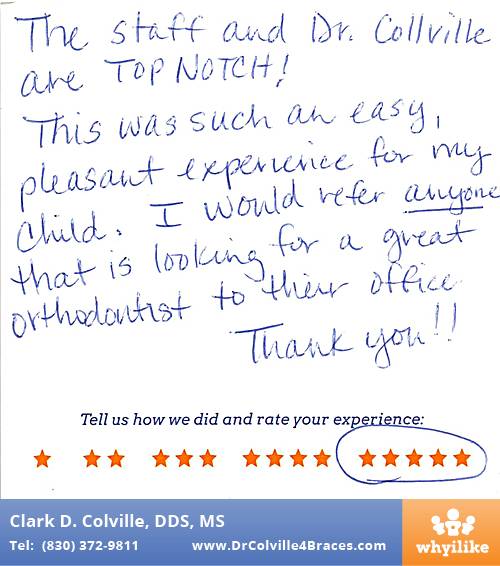 The staff and Dr. Collville
are TOP NOTCH!
This was such an easy,
pleasant experience for my
child. I would refer anyone
that is looking for a great
orthodontist to their office.
Thank you!!
Tell us how we did and rate your experience:
Clark D. Colville, DDS, MS
Tel: (830) 372-9811 www.DrColville4Braces.com
whyilike